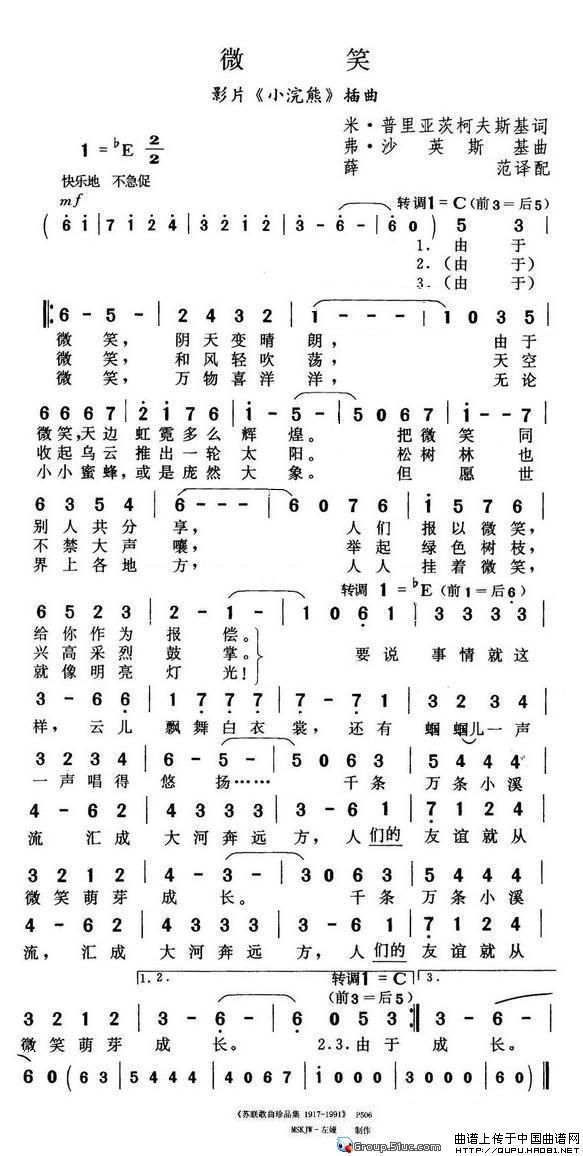 微 笑
影片《小浣熊》插曲
米·普里亚茨柯夫斯基词
弗·沙 英 斯 基曲
薛 范译配
1=♭E 2/2
快乐地 不急促
mf
转调1=C(前3=后5)
( 6 i | 7 1 2 4 | 3 2 1 2 | 3 - 6 - | 6 0 ) 5 3 |
1. 由 于
2.(由 于)
3.(由 于)
6 - 5 - | 2 4 3 2 | 1 - - - | 1 0 3 5 |
微 笑, 阴 天 变 晴 朗, 由 于
微 笑, 和 风 轻 吹 荡, 天 空
微 笑, 万 物 喜 洋 洋, 无 论
6 6 6 7 | 2 1 7 6 | 1 - 5 - | 5 0 6 7 | 1 - - 7 |
微笑,天边 虹霓多么 辉 煌。 把微 笑 同
收起乌云 推出一轮 太 阳。 松树 林 也
小小蜜蜂,或是庞然 大 象。 但愿 世
6 3 5 4 | 6 - - - | 6 0 7 6 | 1 5 7 6 |
别 人 共 分 享, 人 们 报 以 微 笑,
不 禁 大 声 嚷, 举 起 绿 色 树 枝,
界 上 各 地 方, 人 人 挂 着 微 笑,
转调 1=♭E(前1=后6)
6 5 2 3 | 2 - 1 - | 1 0 6 1 | 3 3 3 3 |
给 你 作 为 报 偿。
兴 高 采 烈 鼓 掌。 要 说 事 情 就 这
就 像 明 亮 灯 光!
3 - 6 6 | 1 7 7 7 | 7 - 7 1 | 3 2 3 4 |
样, 云 儿 飘 舞 白 衣 裳, 还 有 蝈 蝈儿 一 声
3 2 3 4 | 6 - 5 - | 5 0 6 3 | 5 4 4 4 |
一 声 唱 得 悠 扬…… 千 条 万 条 小 溪
4 - 6 2 | 4 3 3 3 | 3 - 6 1 | 7 1 2 4 |
流 汇 成 大 河 奔 远 方, 人 们的 友 谊 就 从
3 2 1 2 | 4 - 3 - | 3 0 6 3 | 5 4 4 4 |
微 笑 萌 芽 成 长。 千 条 万 条 小 溪
4 - 6 2 | 4 3 3 3 | 3 - 6 1 | 7 1 2 4 |
流, 汇 成 大 河 奔 远 方, 人 们的 友 谊 就 从
1. 2. 转调1=C 3.
(前3=后5)
3 2 1 2 | 3 - 6 - | 6 0 5 3 :| 3 - 6 - |
微 笑 萌 芽 成 长。 2.3.由 于 成 长。
6 0 ( 6 3 | 5 4 4 4 | 4 0 6 2 | 4 3 3 3 | 3 0 6 1 | 1 0 0 0 | 3 0 0 0 | 6 0 6 0 | 6 0 ) ‖
《苏联歌曲珍品集 1917-1991》 P506
MSKJW-左娅 制作
Group.51uc.com
曲谱上传于中国曲谱网
http://QUPU.HAO81.NET